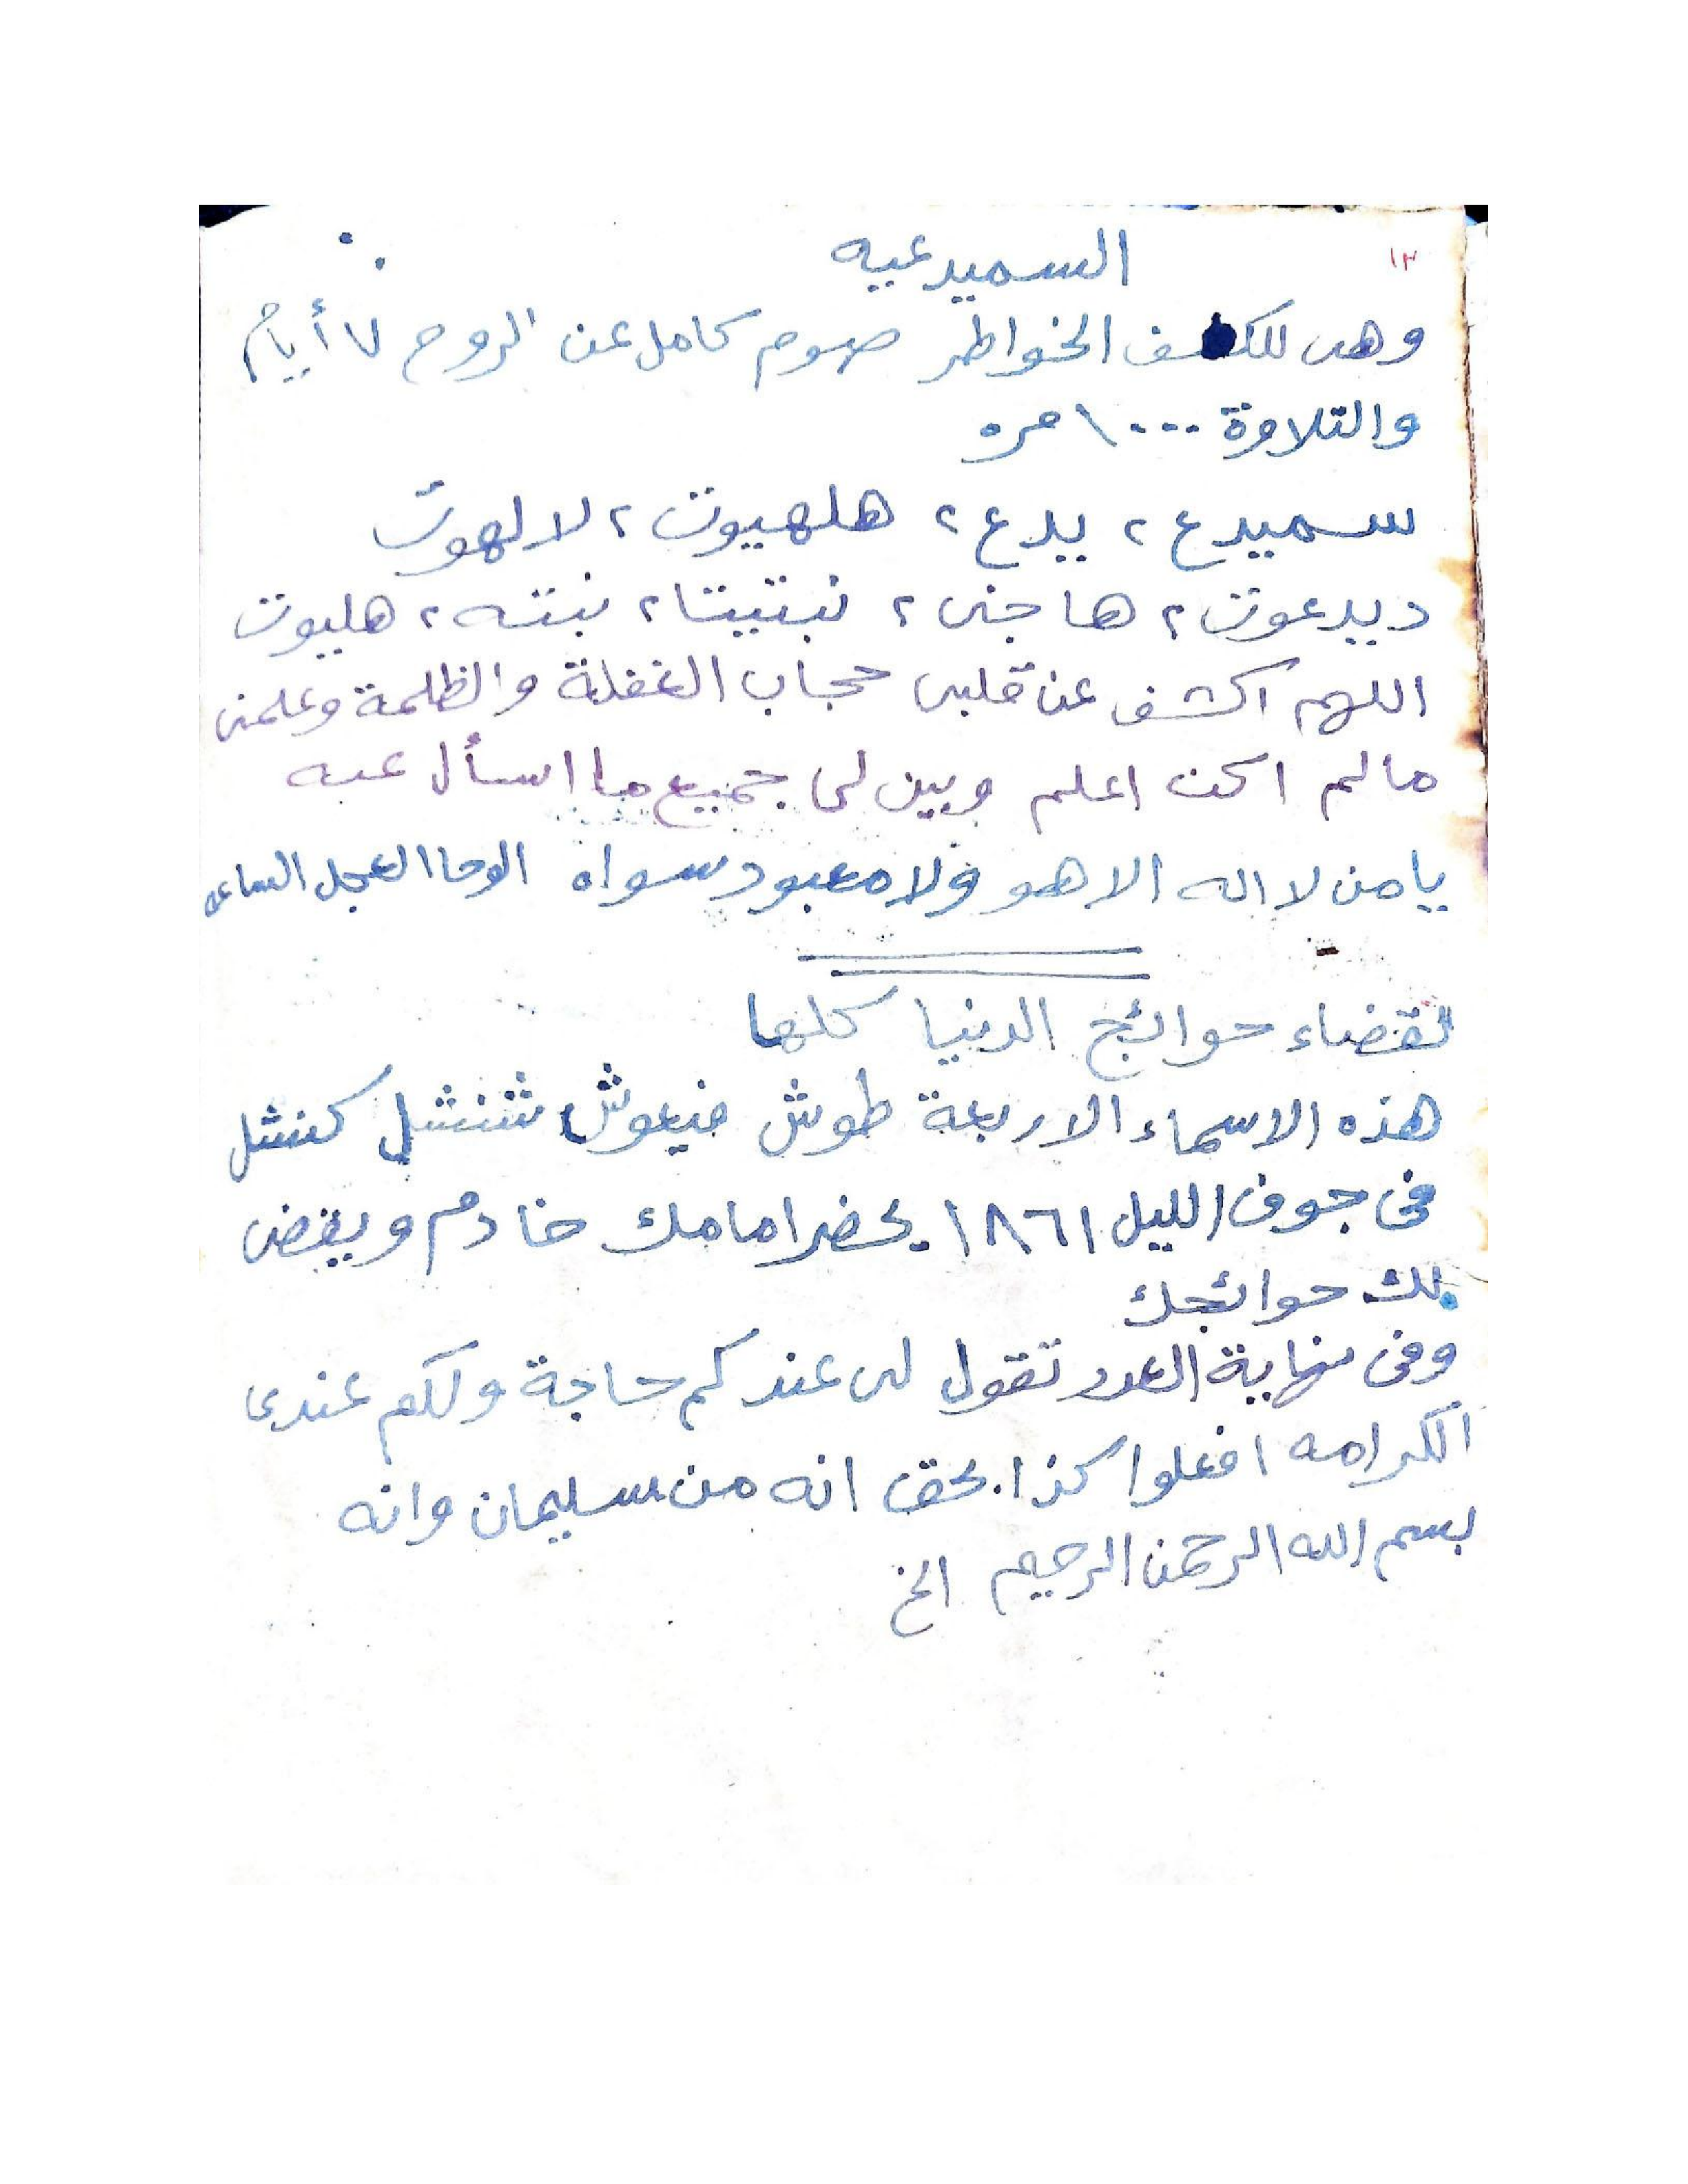 ١٣
السميدعيه
وهى للكشف الخواطر صوم كامل عن الروح ٧ أيام
والتلاوة ١٠٠٠ مره
سميدع ٢ يدع ٢ هلهيوت ٢ لا لهوت
ديدعوت ٢ هاجى ٢ نبتيتا ٢ نبته ٢ هليوت
اللهم اكشف عن قلبى حجاب الغفلة والظلمة وعلمنى
مالم اكن اعلم وبين لى جميع ما اسأل عنه
يا من لا اله الا هو ولا معبود سواه الوحا العجل الساعه
لقضاء حوائج الدنيا كلها
هذه الاسماء الاربعة طوش فيعوش شنشل كنشل
فى جوف الليل ١٨٦١ يحضر امامك خادم ويقضى
لك حوائجك
وفى نهاية العدد تقول لى عندكم حاجة ولكم عندى
الكرامه افعلوا كذا بحق انه من سليمان وانه
بسم الله الرحمن الرحيم الخ